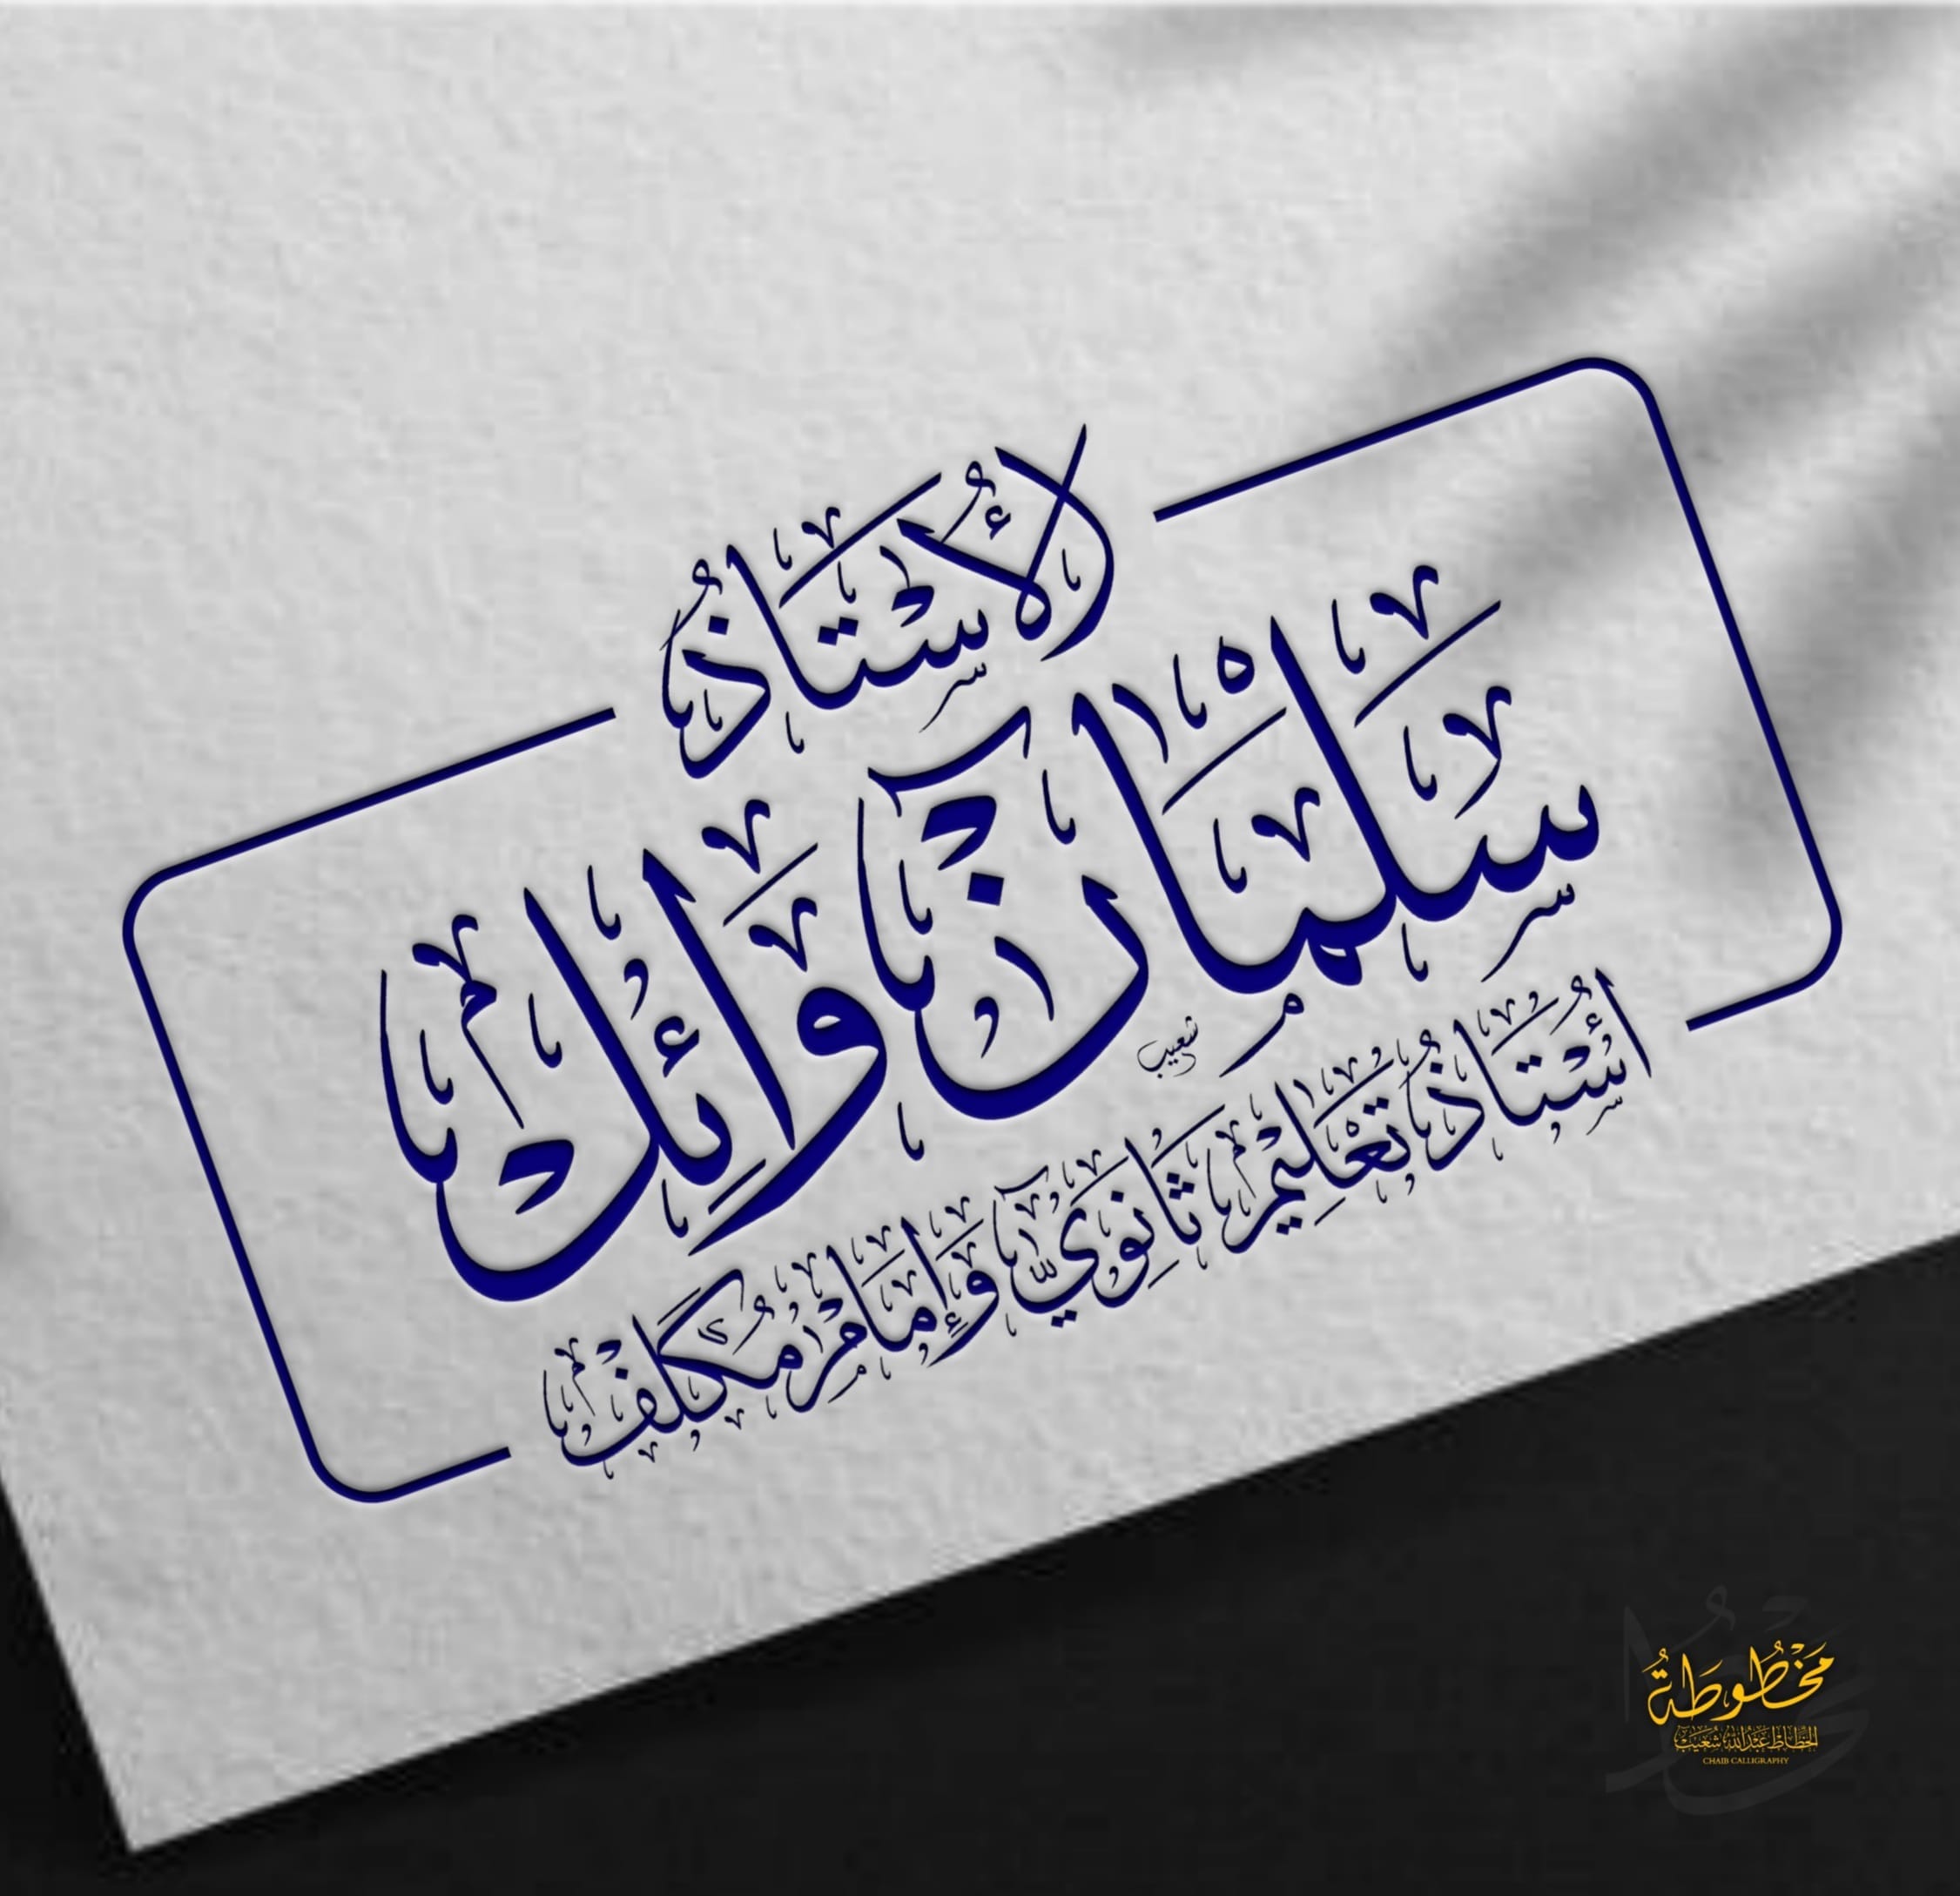 الأستاذ
سلمان وائل
شعيب
أستاذ تعليم ثانوي وإمام مكلف
مخطوطة
الخطاط عبدالله شعيب
CHAIB CALLIGRAPHY